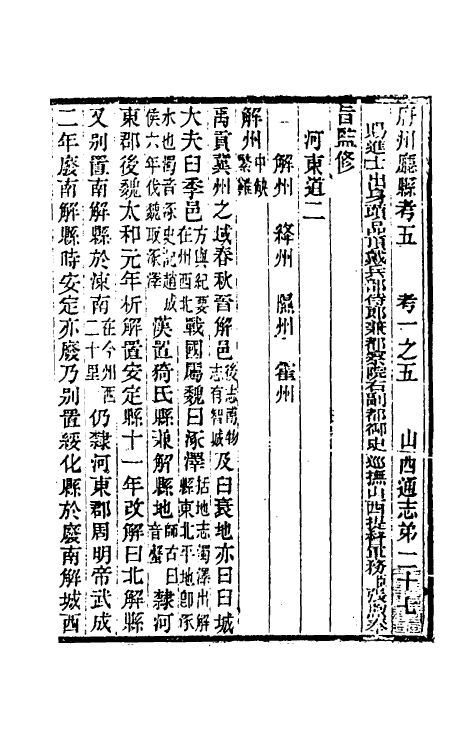 府州廳縣考五　考一之五　山西通志第二十七
賜進士出身頭品頂戴兵部侍郎兼都察院右副都御史巡撫山西提督軍務
旨監修
河東道二
解州　絳州　隰州　霍州
解州中缺繁難
禹貢冀州之域春秋晉解邑後志南物志有智城及臼衰地亦曰臼城
大夫臼季邑方輿紀要在州西北戰國屬魏曰涿澤括地志濁澤出解縣東北平地卽涿
水也濁音涿史記趙成侯六年伐魏取涿澤漢置猗氏縣兼解縣地師古曰音蟹隸河
東郡後魏太和元年析解置安定縣十一年改解曰北解縣
又別置南解縣於涑南在今州西二十里仍隸河東郡周明帝武成
二年廢南解縣時安定亦廢乃別置綏化縣於廢南解城西